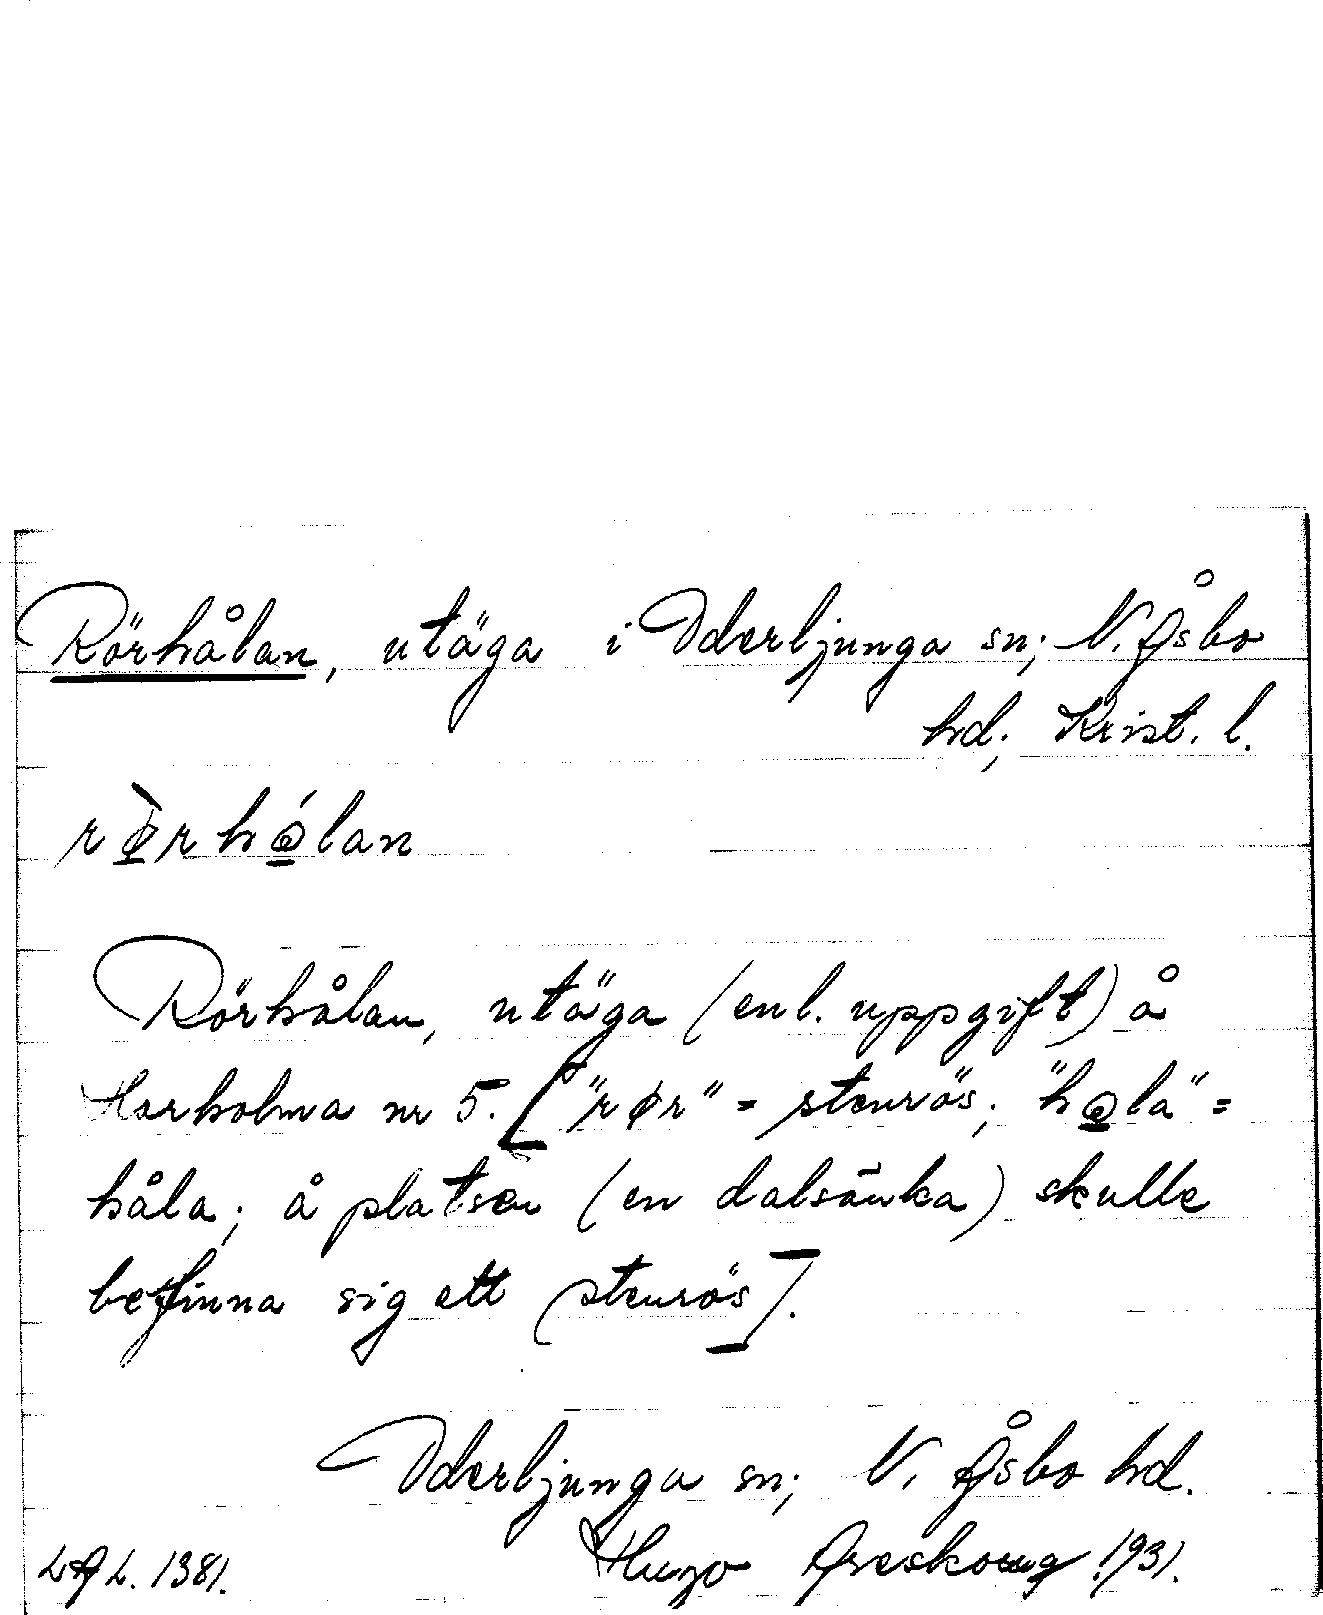 Rörhålan, utäga i Oderljunga sn; N. Åsbo
hd; Krist. l.
rø̀rhǫ́lan
Rörhålan, utäga (enl. uppgift) å
Harholma nr 5. ["rør" = stenrös; "hǫla" =
håla; å platsen (en dalsänka) skulle
befinna sig ett stenrös].
Oderljunga sn; N. Åsbo hd.
LAL. 1381. Hugo Areskoug 1931.